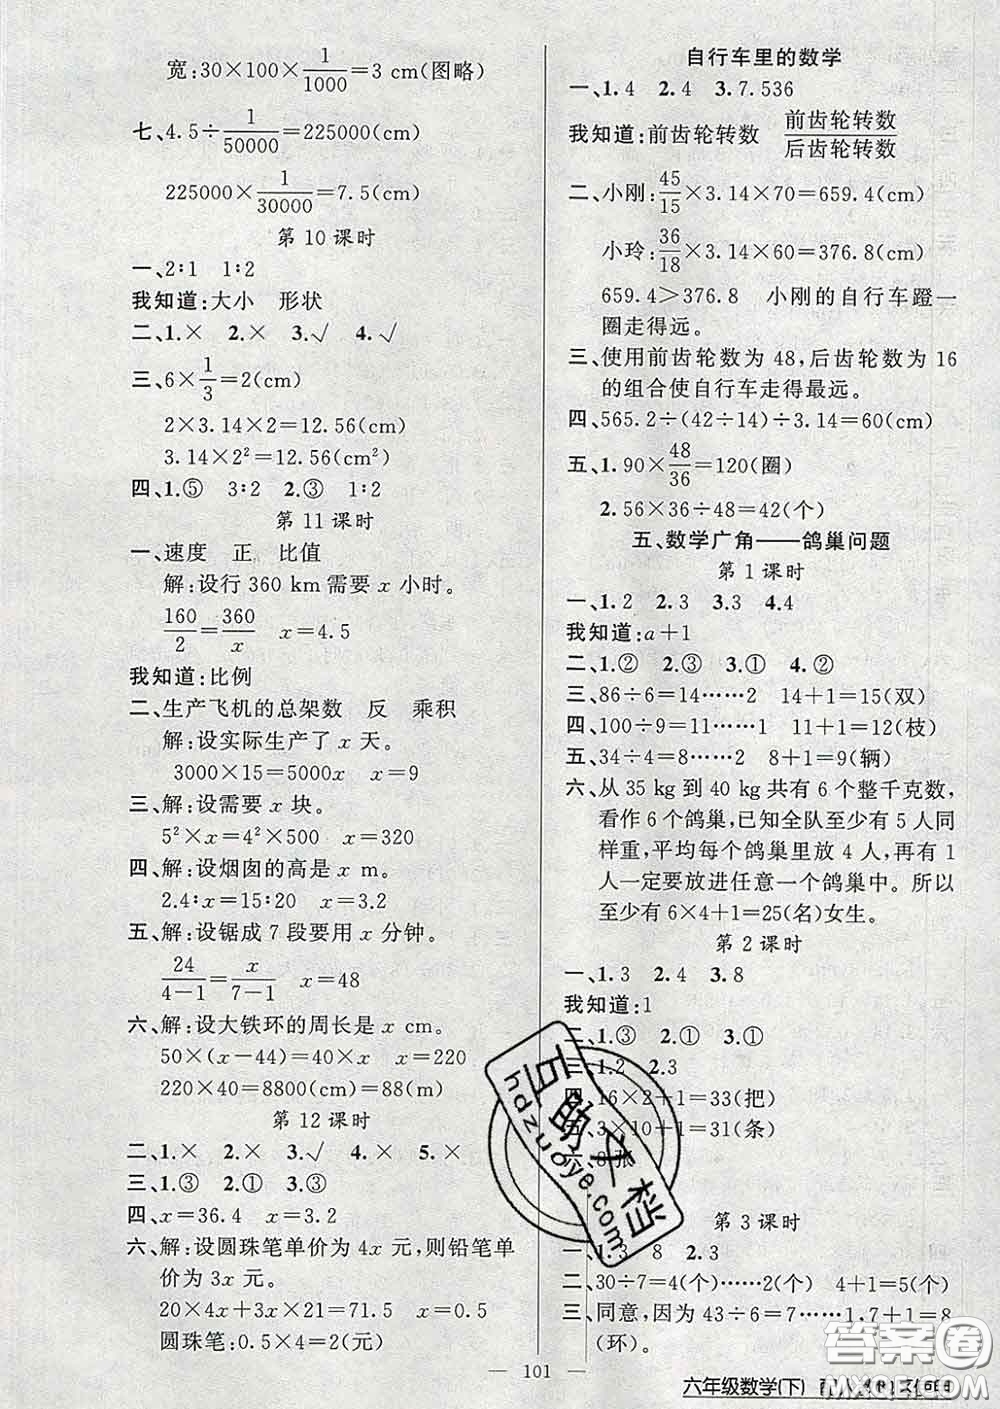 宽:30×100×1/1000=3 cm(图略)
七、4.5÷1/50000=225000(cm)
225000×1/30000=7.5(cm)
第 10 课时
一、2∶1 1∶2
我知道:大小 形状
二、1.× 2.× 3.√ 4.√
三、6×1/3=2(cm)
2×3.14×2=12.56(cm)
3.14×2²=12.56(cm²)
四、1.⑤ 3∶2 2.③ 1∶2
第 11 课时
一、速度 正 比值
解:设行 360 km需要 x 小时。
160/2=360/x x=4.5
我知道:比例
二、生产飞机的总架数 反 乘积
解:设实际生产了 x 天。
3000×15=5000x x=9
三、解:设需要 x 块。
5²×x=4²×500 x=320
四、解:设烟囱的高是 x m。
2.4∶x=15∶20 x=3.2
五、解:设锯成 7 段要用 x 分钟。
24/(4-1)=x/(7-1) x=48
六、解:设大铁环的周长是 x cm。
50×(x-44)=40×x x=220
220×40=8800(cm)=88(m)
第 12 课时
二、1.× 2.× 3.√ 4.× 5.×
三、1.③ 2.① 3.③
四、x=36.4 x=3.2
六、解:设圆珠笔单价为 4x 元,则铅笔单
价为 3x 元。
20×4x+3x×21=71.5 x=0.5
圆珠笔:0.5×4=2(元)
自行车里的数学
一、1.4 2.4 3.7.536
我知道:前齿轮转数 前齿轮转数/后齿轮转数
二、小刚:45/15×3.14×70=659.4(cm)
小玲:36/18×3.14×60=376.8(cm)
659.4>376.8 小刚的自行车蹬一
圈走得远。
三、使用前齿轮数为 48,后齿轮数为 16
的组合使自行车走得最远。
四、565.2÷(42÷14)÷3.14=60(cm)
五、1.90×48/36=120(圈)
2.56×36÷48=42(个)
五、数学广角——鸽巢问题
第 1 课时
一、1.2 2.3 3.3 4.4
我知道:a+1
二、1.② 2.③ 3.① 4.②
三、86÷6=14……2 14+1=15(双)
四、100÷9=11……1 11+1=12(枝)
五、34÷4=8……2 8+1=9(辆)
六、从 35 kg 到 40 kg 共有 6 个整千克数,
看作 6 个鸽巢,已知全队至少有 5 人同
样重,平均每个鸽巢里放 4 人,再有 1
人一定要放进任意一个鸽巢中。所以
至少有 6×4+1=25(名)女生。
第 2 课时
一、1.3 2.4 3.8
我知道:1
二、1.③ 2.① 3.①
三、1.2 2.3
四、16×2+1=33(把)
五、3×10+1=31(条)
六、8张
第 3 课时
一、1.3 8 2.3
二、30÷7=4(个)……2(个) 4+1=5(个)
三、同意,因为 43÷6=7……1,7+1=8
(环)。
101
六年级数学(下)
互助文档
hdzuoye.com
答案圈